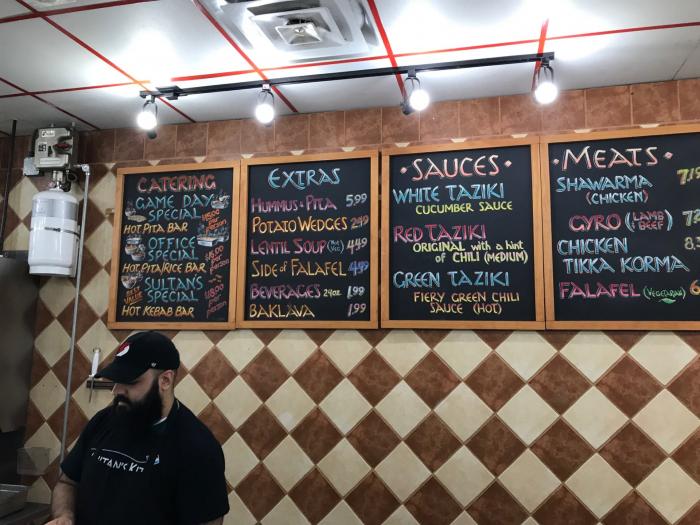 CATERING
GAME DAY
SPECIAL
HOT PITA BAR
per
person
OFFICE
SPECIAL
HOT PITA/RICE BAR
per
person
SULTAN'S
SPECIAL
HOT KEBAB BAR
per
person
EXTRAS
HUMMUS & PITA 5.99
POTATO WEDGES 2.49
LENTIL SOUP 4.49
SIDE OF FALAFEL 4.49
BEVERAGES 24oz 1.99
BAKLAVA 1.99
• SAUCES •
WHITE TAZIKI
CUCUMBER SAUCE
RED TAZIKI
ORIGINAL with a hint
of CHILI (MEDIUM)
GREEN TAZIKI
FIERY GREEN CHILI
SAUCE (HOT)
• MEATS •
SHAWARMA
(CHICKEN)
GYRO (LAMB & BEEF)
CHICKEN
TIKKA KORMA
FALAFEL (VEGETARIAN)